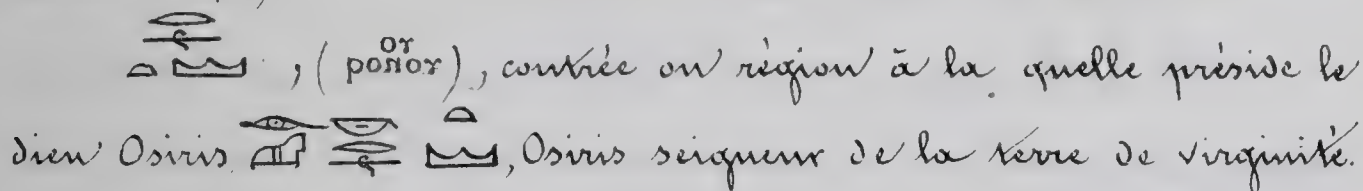 𓂋𓍬𓏏𓈉, (ⲣⲟⲛⲟⲩ ⲟⲩ), contrée ou région à la quelle préside le
dieu Osiris 𓁹𓊨𓎟𓂋𓍬𓏏𓈉, Osiris seigneur de la terre de virginité.